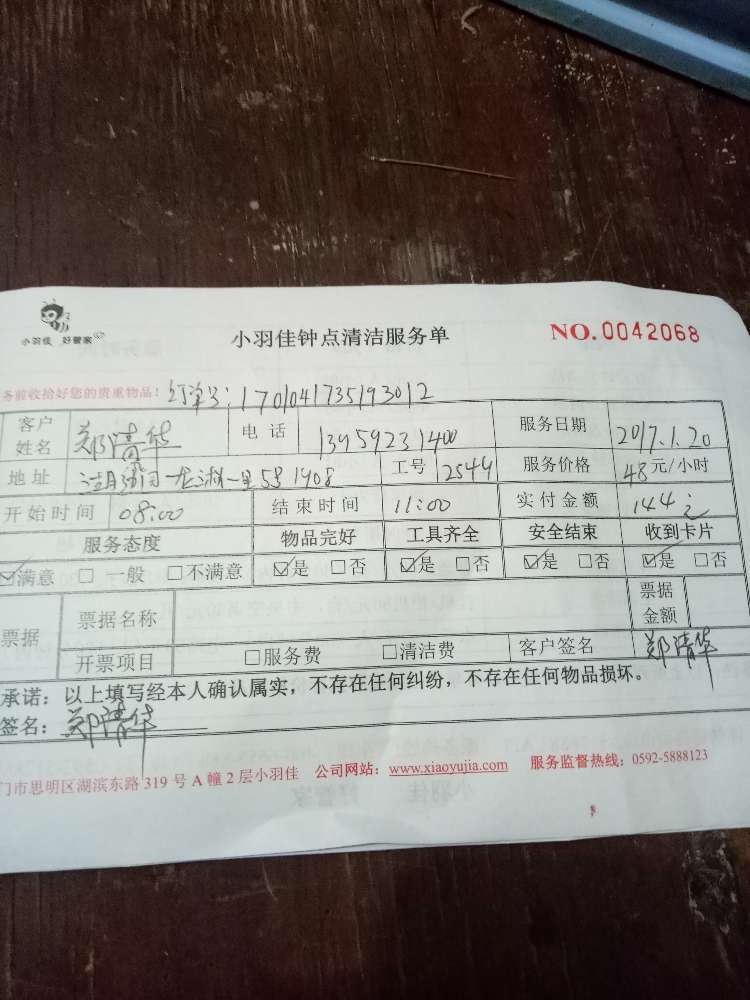 小羽佳 好管家
小羽佳钟点清洁服务单
NO.0042068
务前收拾好您的贵重物品! 订单号:1701041735193012
客户姓名 郑清华 电话 13959231400 服务日期 2017.1.20
地址 一里55号1908 工号 2544 服务价格 48元/小时
开始时间 08:00 结束时间 11:00 实付金额 144元
服务态度 物品完好 工具齐全 安全结束 收到卡片
☑满意 □一般 □不满意 ☑是 □否 ☑是 □否 ☑是 □否 ☑是 □否
票据 票据名称 票据金额
开票项目 □服务费 □清洁费 客户签名 郑清华
承诺:以上填写经本人确认属实,不存在任何纠纷,不存在任何物品损坏。
签名:郑清华
门市思明区湖滨东路319号A幢2层小羽佳 公司网站:www.xiaoyujia.com 服务监督热线:0592-5888123